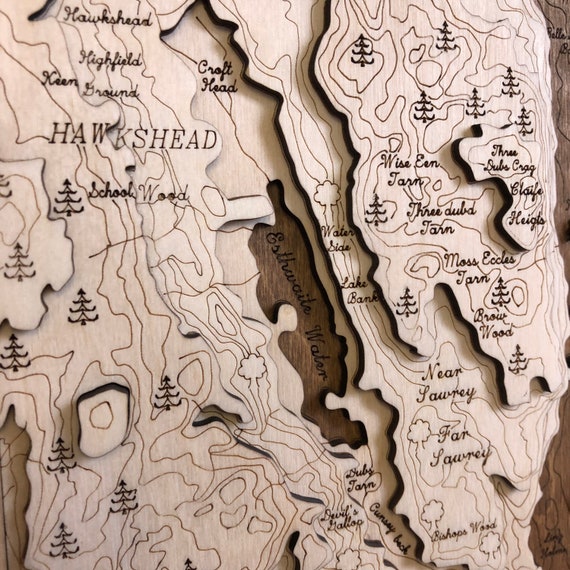 Hawkshead
Highfield
Keen
Ground
Croft
Head
HAWKSHEAD
School Wood
Wise Een
Tarn
Three
Dubs Crag
Claife
Heigts
Three dubd
Tarn
Water
Side
Esthwaite Water
Lake
Bank
Moss Eccles
Tarn
Brow
Wood
Near
Sawrey
Far
Sawrey
Dubs
Tarn
Devil's
Gallop
Cunsey beck
Bishops Wood